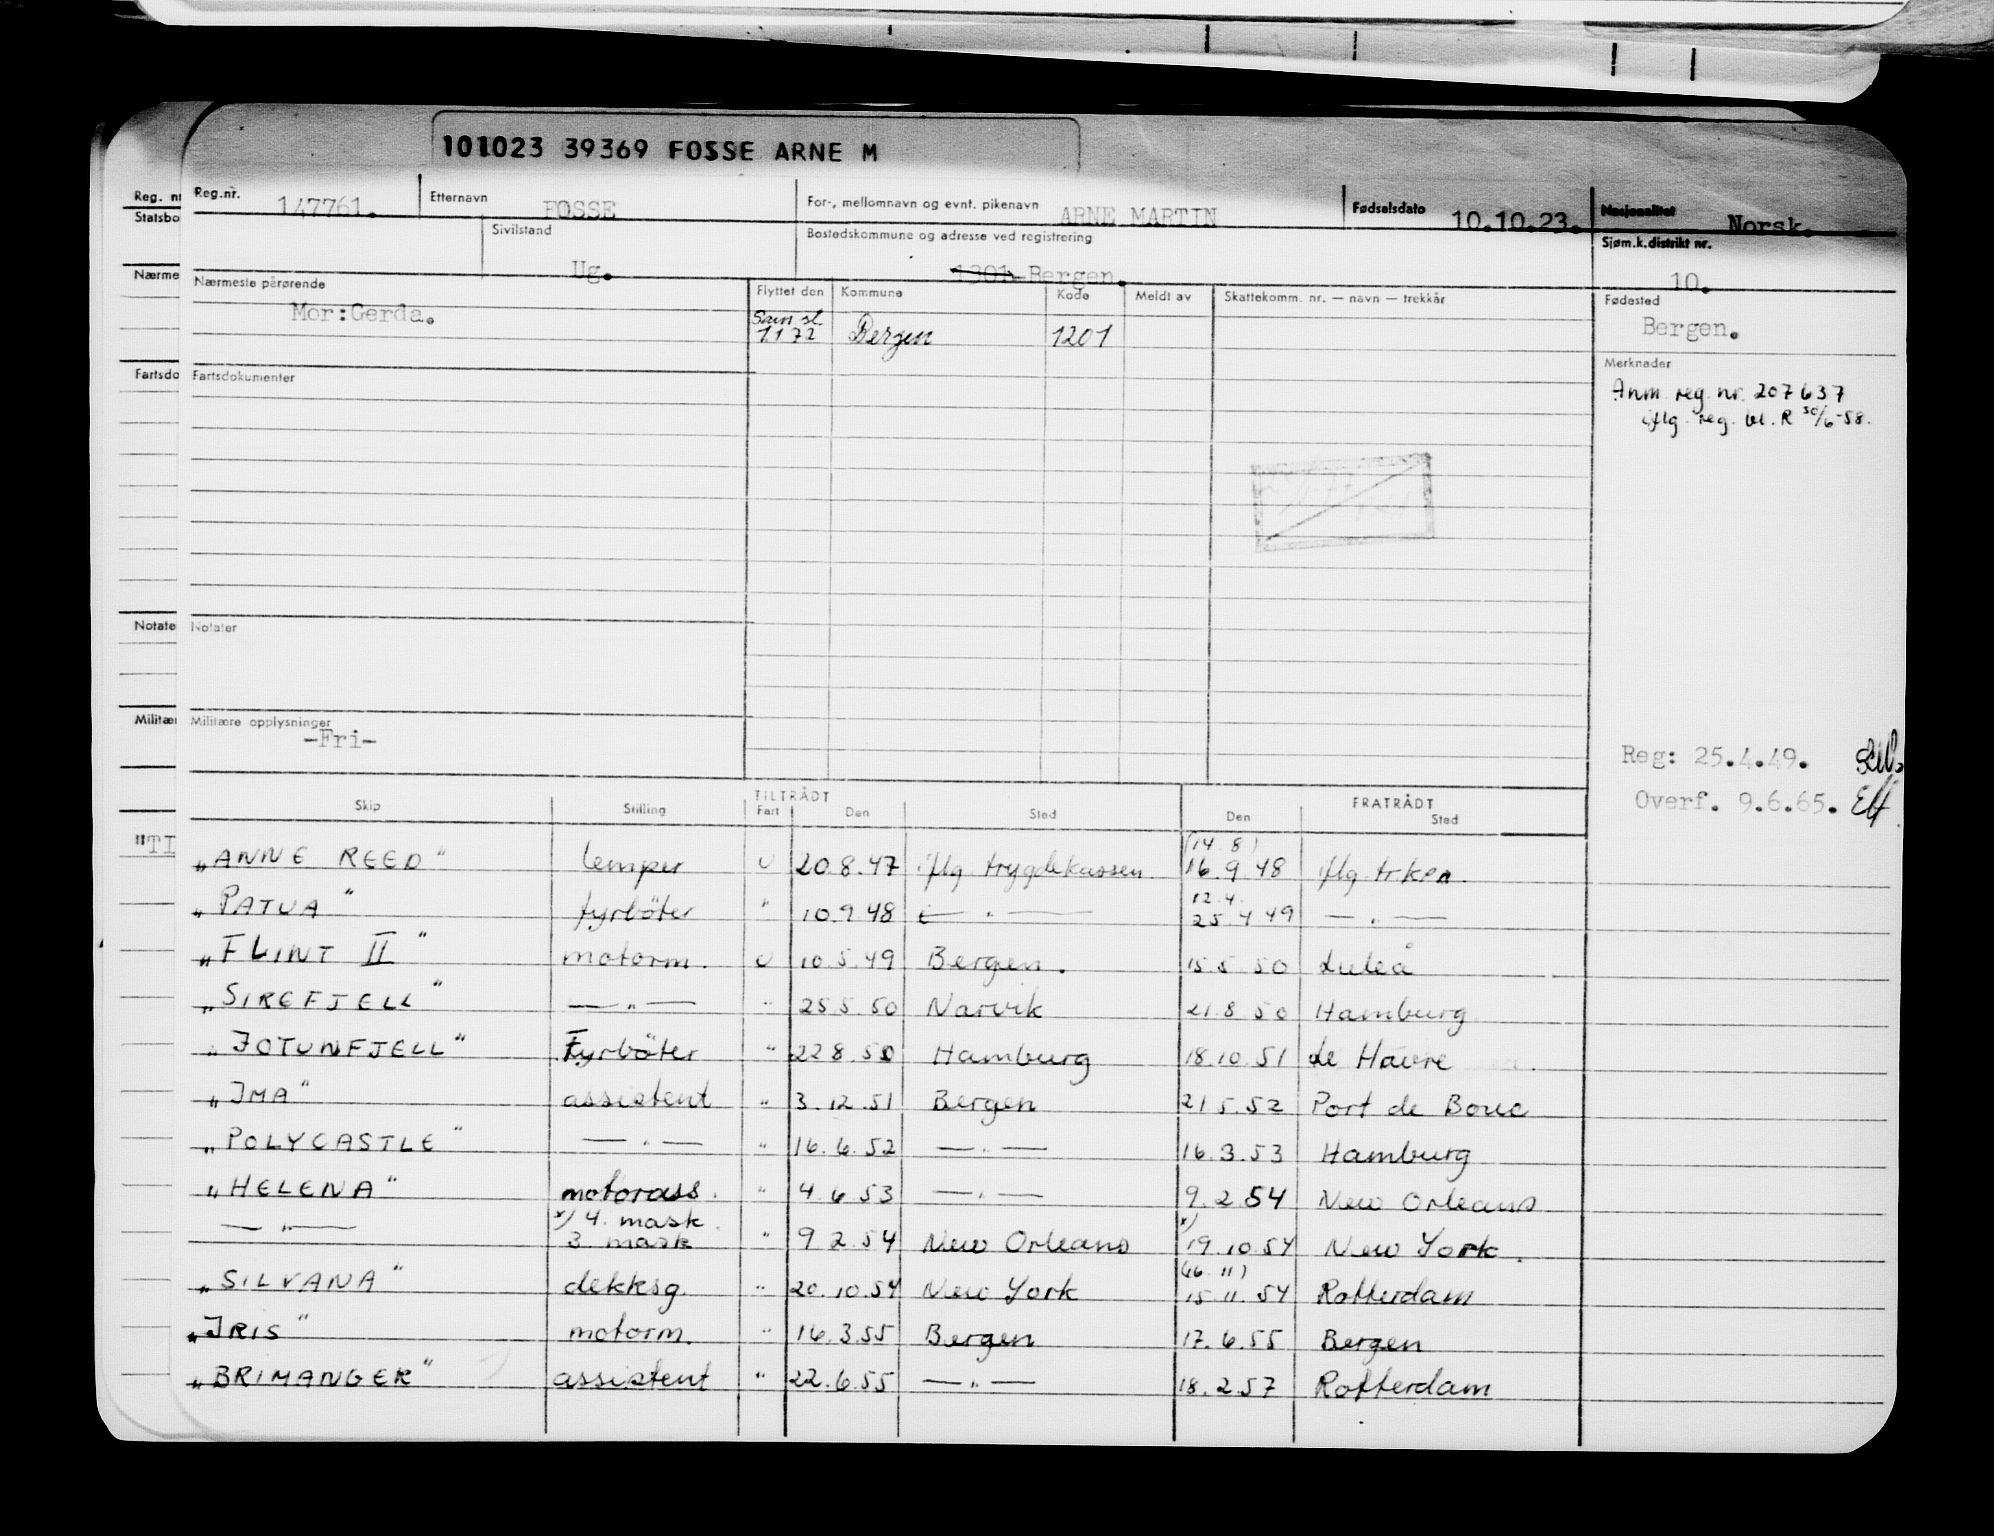 101023 39369 FOSSE ARNE M
Reg. n Reg.nr. 147761. Etternavn FOSSE For-, mellomnavn og evnt. pikenavn ARNE MARTIN Fødselsdato 10.10.23. Nasjonalitet Norsk.
Statsbo Sivilstand Ug. Bostedskommune og adresse ved registrering 1301 Bergen. Sjøm.k.distrikt nr. 10.
Nærme Nærmeste pårørende Mor:Gerda. Flyttet den Kommune Kode Meldt av Skattekomm. nr. — navn — trekkår Fødested Bergen.
1.1 72 Bergen 1201
Fartsdo Fartsdokumenter Merknader
Anm. reg. nr. 207637
iflg. reg. bl. R 30/6-58.
Notate Notater
Militær Militære opplysninger
-Fri-
Reg: 25.4.49.
Overf. 9.6.65.
TILTRÅDT FRATRÅDT
Skip Stilling Fart Den Sted Den Sted
"TI
„ANNE REED" lemper U 20.8.47 iflg. trygdekassen (14.8) 16.9 48 iflg. trken.
„PATUA" fyrböter " 10.9.48 — " — 12.4. 25.4 49 — " —
„FLINT II" motorm. U 10.5.49 Bergen. 15.5.50 Luleå
„SIREFJELL" — " — " 25.5.50 Narvik 21.8 50 Hamburg
„JOTUNFJELL" Fyrböter " 22 8.50 Hamburg 18.10.51 Le Havre
„IMA" assistent " 3.12.51 Bergen 21 5.52 Port de Bouc
„POLYCASTLE" — " — " 16.6.52 — " — 16.3.53 Hamburg
„HELENA" motorass. " 4.6 53 — " — 9.2.54 New Orleans
— " — x) 4. mask. 3 mask " 9 2.54 New Orleans x) 19.10.54 New York.
„SILVANA" dekksg. " 20.10.54 New York (16.11) 15.11.54 Rotterdam
„IRIS" motorm. " 16.3.55 Bergen 17.6.55 Bergen
„BRIMANGER" assistent " 22.6.55 — " — 18.2.57 Rotterdam